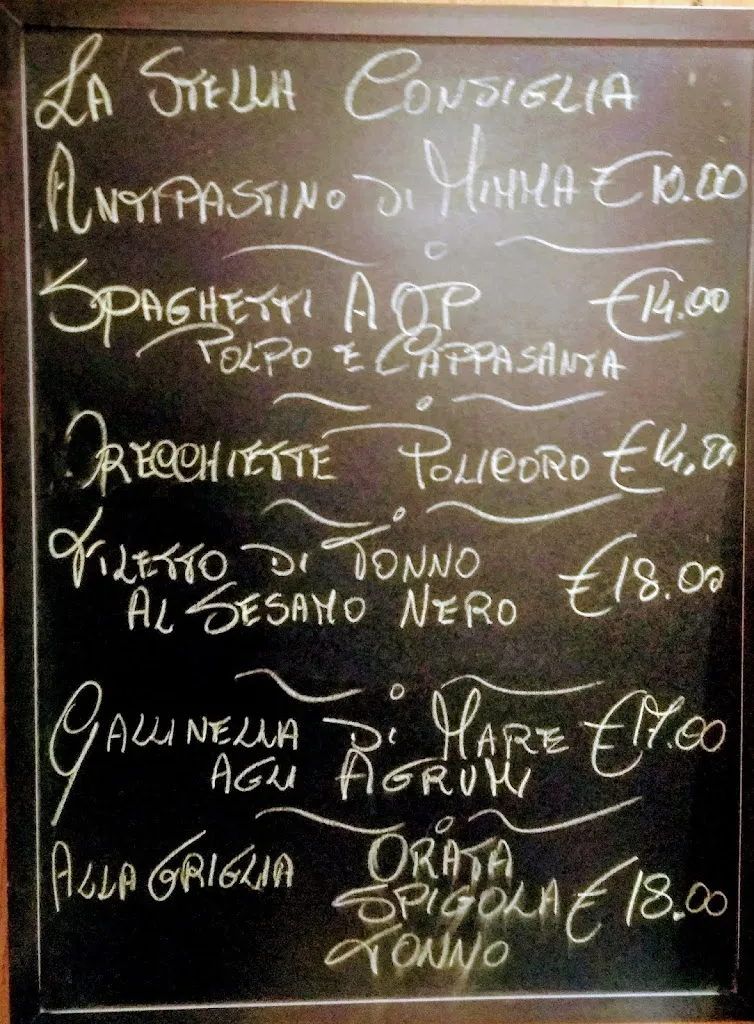 LA STELLA CONSIGLIA
ANTIPASTINO DI MIMMA €10.00
SPAGHETTI AOP €14.00
POLPO E CAPPASANTA
ORECCHIETTE POLICORO €14.00
FILETTO DI TONNO
AL SESAMO NERO €18.00
GALLINELLA DI MARE €17.00
AGLI AGRUMI
ALLA GRIGLIA ORATA
SPIGOLA €18.00
TONNO